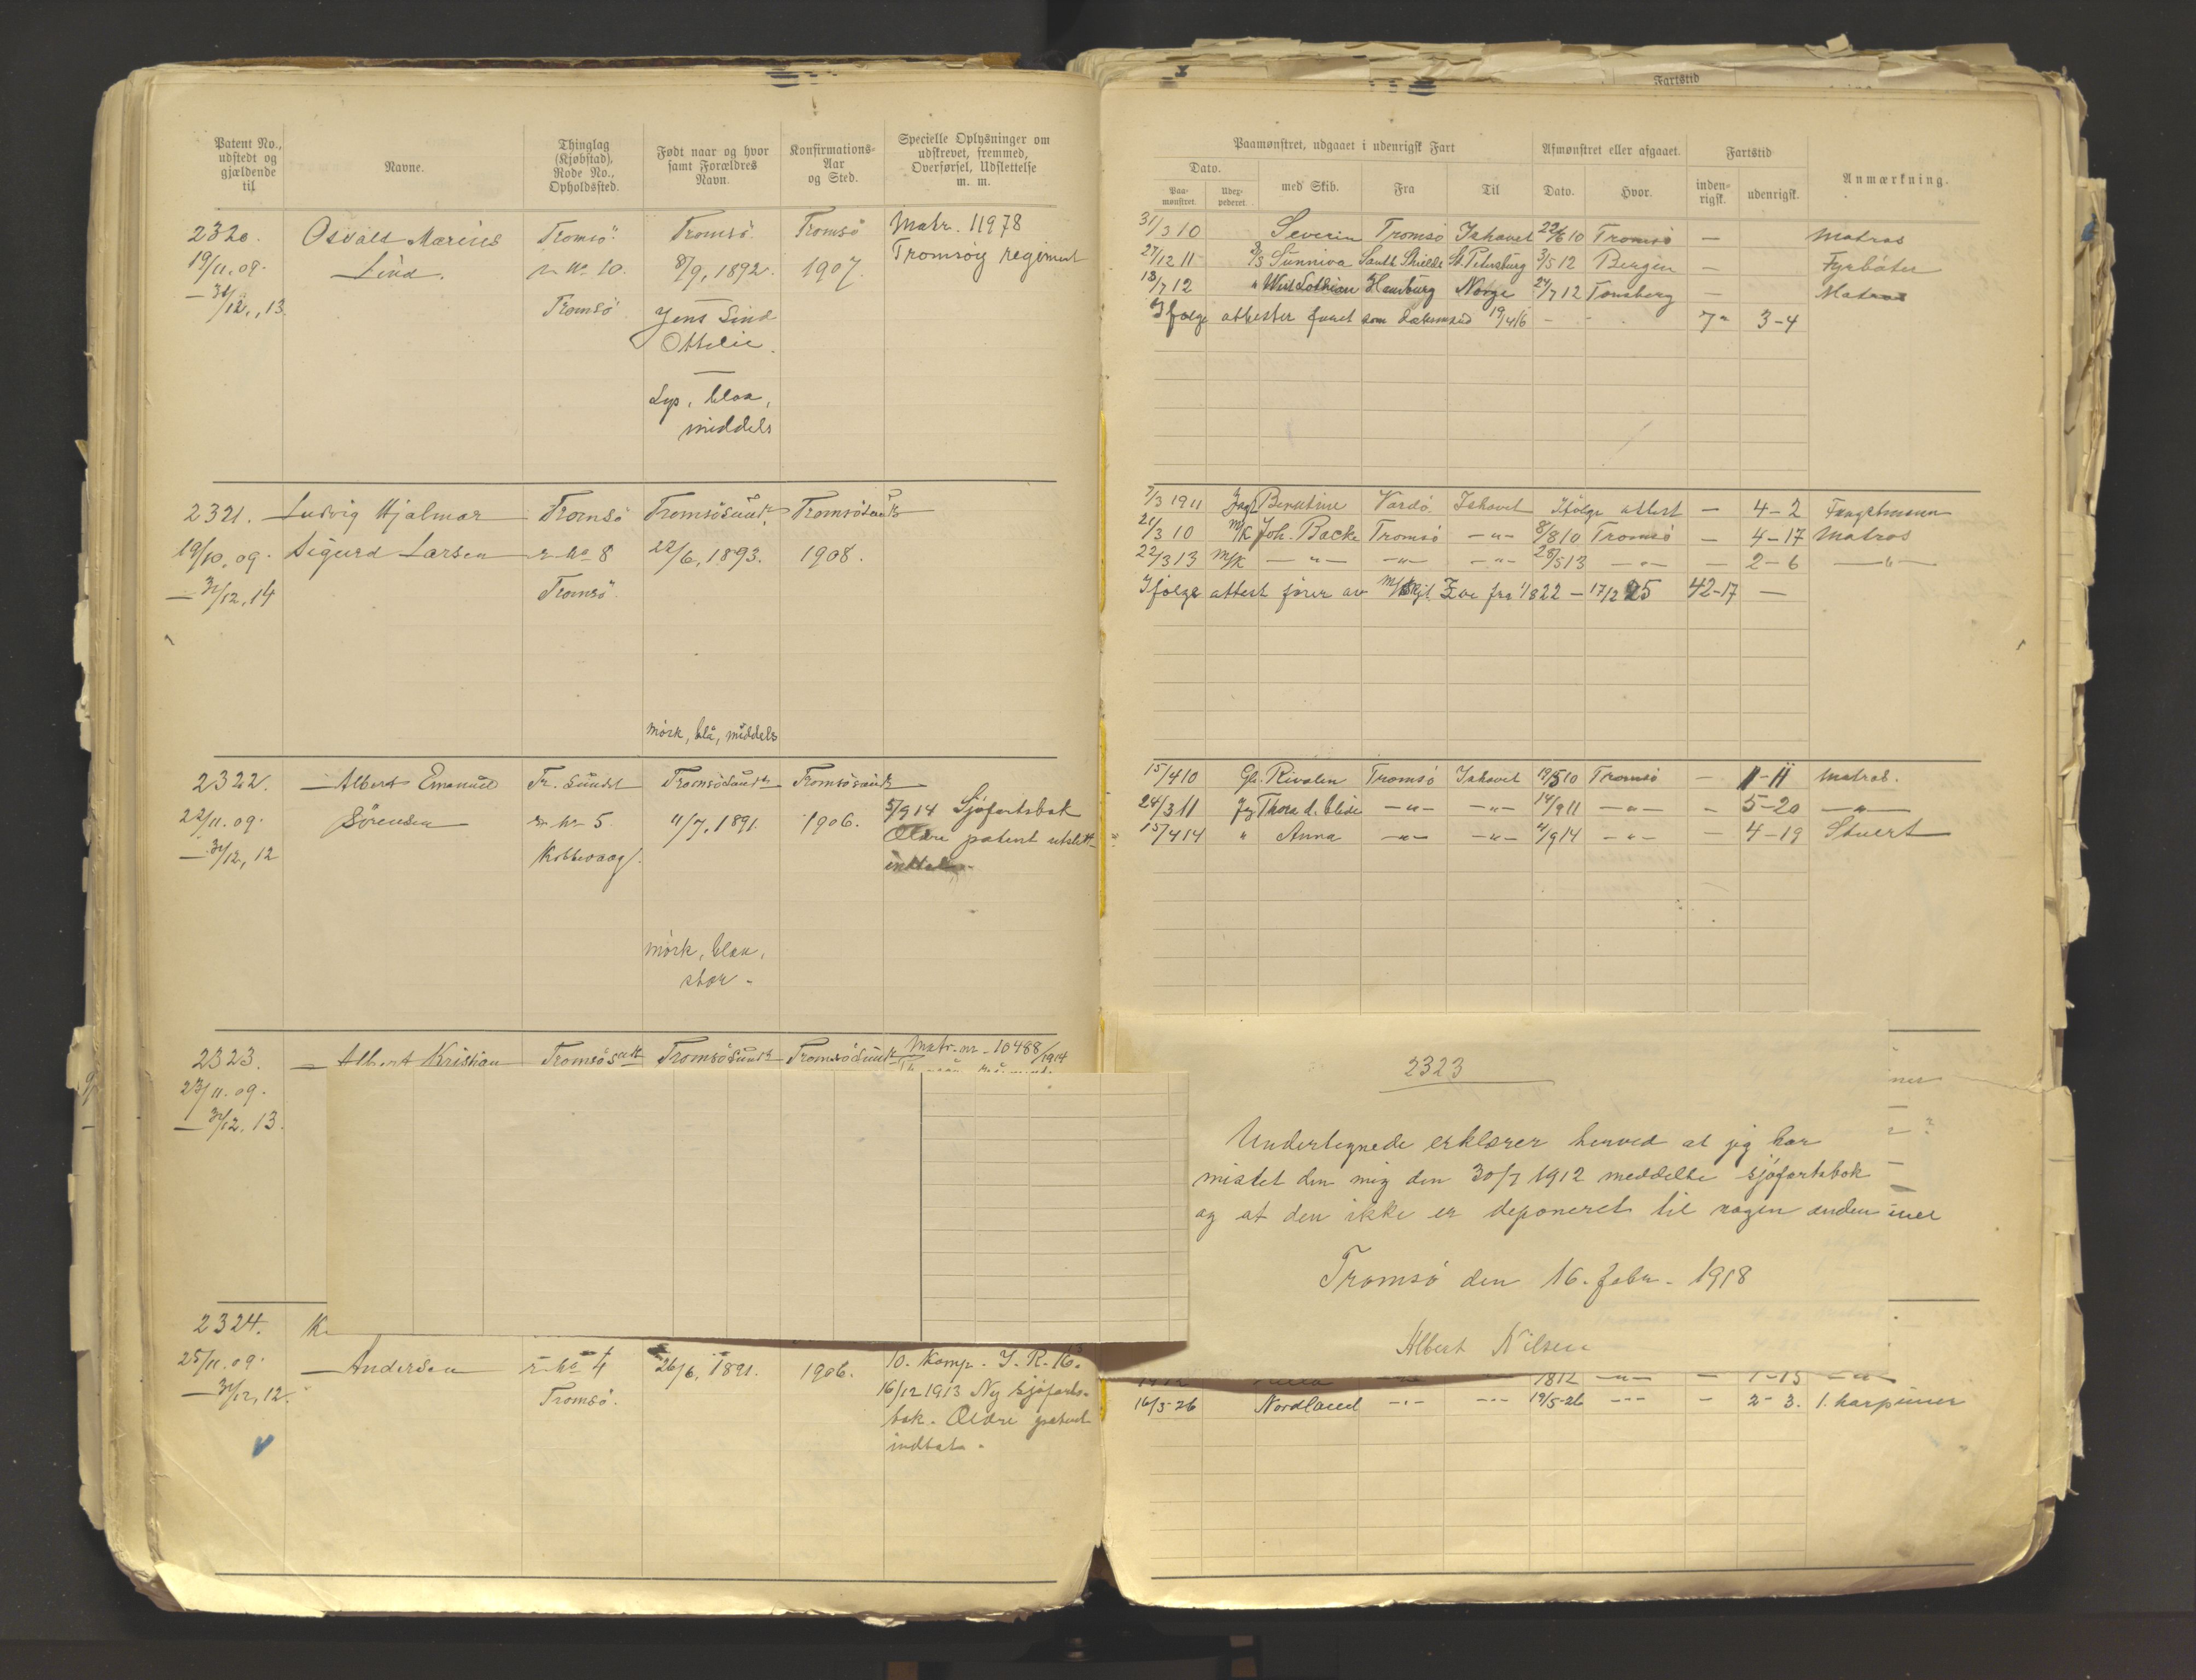 Fartstid
Patent No.,
udstedt og
gjældende
til
Navne.
Thinglag
(Kjøbstad),
Rode No.,
Opholdssted.
Født naar og hvor
samt Forældres
Navn.
Konfirmations-
Aar
og Sted.
Specielle Oplysninger om
udskrevet, fremmed,
Overførsel, Udslettelse
m. m.
2320.
19/11. 09.
— 31/12, 13.
Osvald Marius
Lind.
Tromsö.
r. No 10.
Tromsö.
Tromsö.
8/9, 1892.
Jens Lind
Ottilie.
Lys, blaa,
middels
Tromsö
1907.
Matr. 11978
Tromsöig regiment
2321.
19/10, 09.
— 31/12, 14
Ludvig Hjalmar
Sigurd Larsen
Tromsö
r. No 8
Tromsö.
Tromsösund.
22/6, 1893.
mörk, blå, middels
Tromsösund
1908.
2322.
22/11. 09.
— 31/12, 12
Albert Emanuel
Sörensen
Tr. Sundet
r. No 5.
Kobbevaag.
Tromsösund
11/7, 1891.
mörk, blaa,
stor.
Tromsösund
1906.
5/9 14 Sjøfartsbok
Ældre patent utslett
2323.
23/11. 09.
— 31/12. 13.
Albert Kristian
Tromsösund
Tromsösund
Tromsösund
Matr. nr. 10488/1914
2324.
25/11. 09.
— 31/12, 12.
Andersen
r. No 4
Tromsö.
26/6, 1891.
1906.
10. Komp. I. R. 16.
16/12 1913 Ny sjøfarts-
bok. Ældre patent
indtat.
Paamønstret, udgaaet i udenrigsk Fart
Afmønstret eller afgaaet.
Fartstid
Anmærkning.
Dato.
med Skib.
Fra
Til
Dato.
Hvor.
inden-
rigsk.
udenrigsk.
Paa-
mønstret.
Udex-
pederet.
31/3 10 Severin Tromsö Ishavet 22/6 10 Tromsö — Matros
27/12 11 8/3 Sunniva South Shields St. Petersburg 3/5 12 Bergen — Fyrböter
18/7 12 " West Lothian Hamburg Norge 24/7 12 Tonsberg — Matros
Ifølge attester faret som 19/4 16 — 3-4
7/3 1911 Jagt Bentine Vardö Ishavet Ifølge attest — 4-2 Fangstmann
21/3 10 M/K Joh. Backe Tromsö —"— 8/8 10 Tromsö — 4-17 Matros
22/3 13 M/K —"— —"— —"— 28/5 13 —"— — 2-6 —"—
Ifølge attest fører av M/Skjt. Eva fra 1/8 22 — 17/2 25 42-17 —
15/4 10 Gl. Rivalen Tromsö Ishavet 19/5 10 Tromsö — 1-11 Matros.
24/3 11 Jagt Thora d. blide —"— —"— 14/9 11 —"— — 5-20 —"—
15/4 14 " Anna —"— —"— 4/9 14 —"— — 4-19 Stuert
2323
Undertegnede erklærer herved at jeg har
mistet den mig den 30/7 1912 meddelte sjøfartsbok
og at den ikke er deponeret til nogen anden
Tromsö den 16. febr. 1918
Albert Nilsen
1-15 —"—
16/3-26 Nordland —"— —"— 19/5-26 —"— — 2-3. 1. harpuner